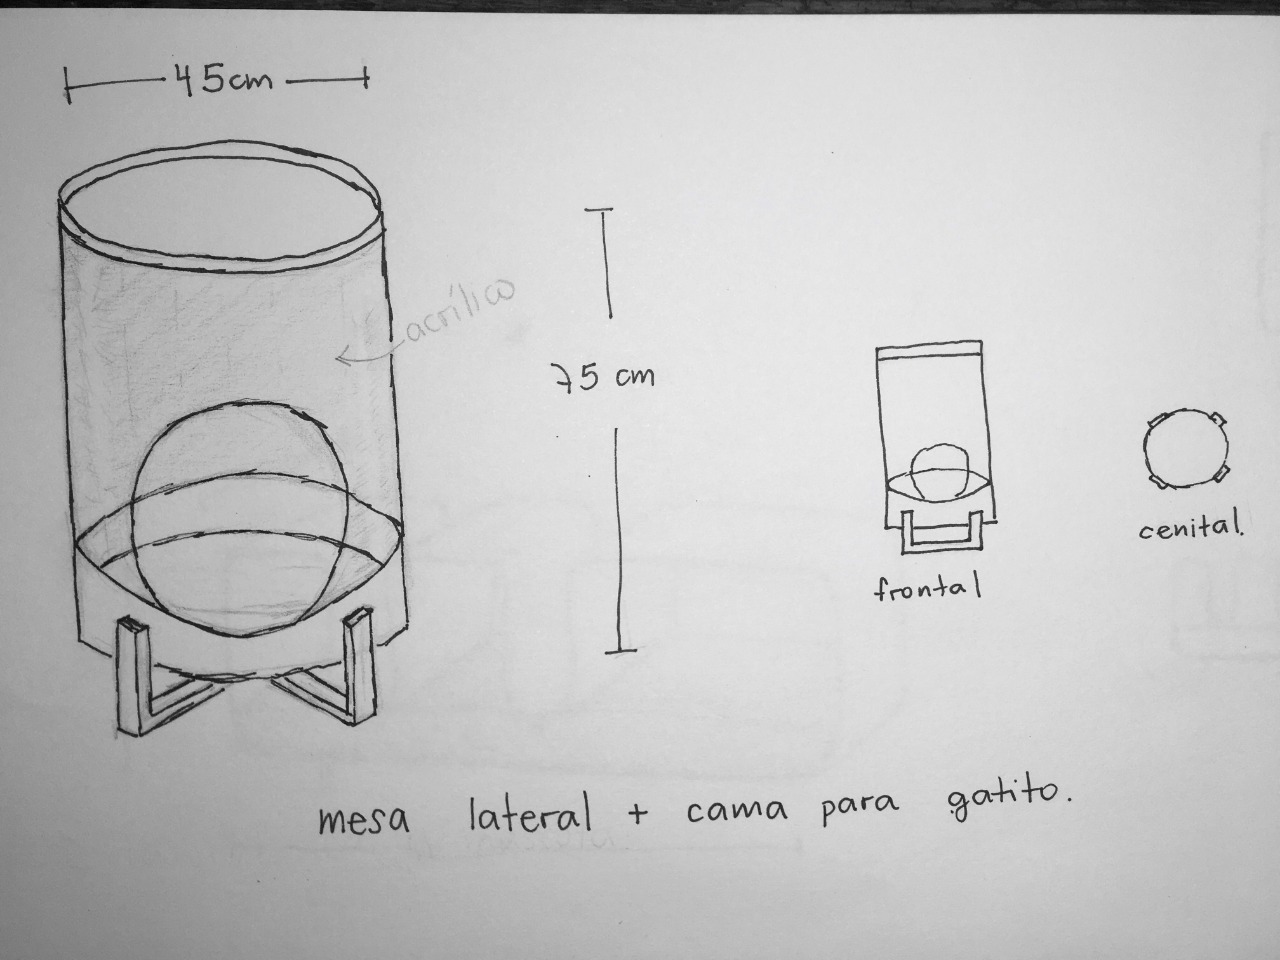 45cm
acrílico
75 cm
frontal
cenital.
mesa lateral + cama para gatito.